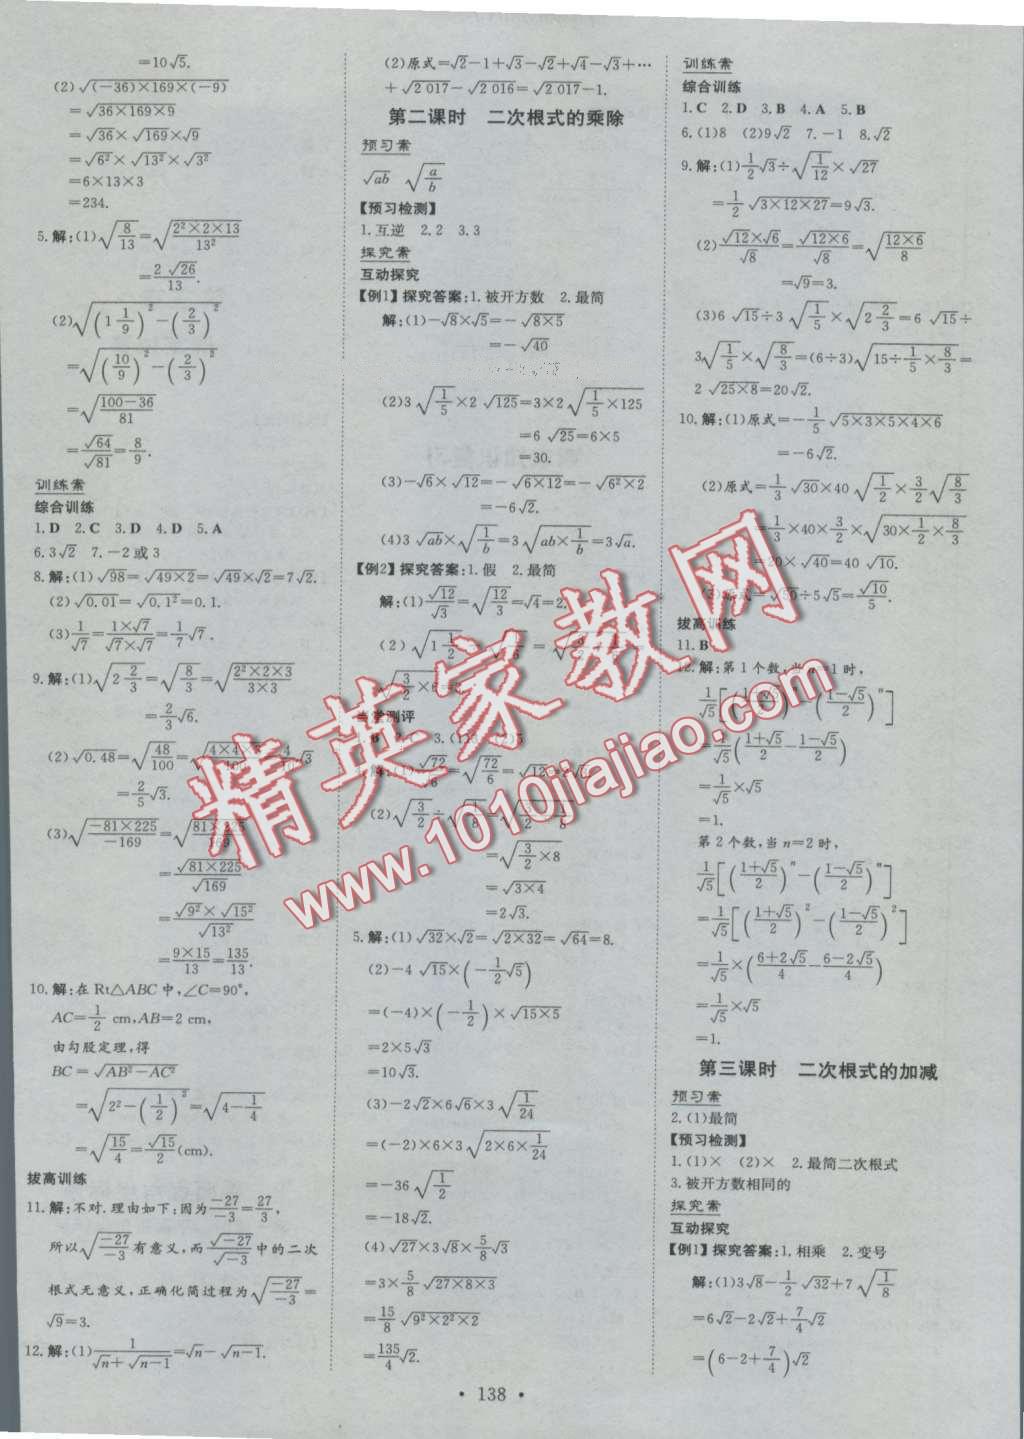 =10√5.
(2)√((-36)×169×(-9))
=√(36×169×9)
=√36×√169×√9
=√6²×√13²×√3²
=6×13×3
=234.
5.解:(1)√(8/13)=√((2²×2×13)/13²)
=2√26/13.
(2)√((1 1/9)²-(2/3)²)
=√((10/9)²-(2/3)²)
=√((100-36)/81)
=√64/√81=8/9.
训练案
综合训练
1.D 2.C 3.D 4.D 5.A
6.3√2 7.-2或3
8.解:(1)√98=√(49×2)=√49×√2=7√2.
(2)√0.01=√0.1²=0.1.
(3)1/√7=(1×√7)/(√7×√7)=1/7 √7.
9.解:(1)√(2 2/3)=√(8/3)=√((2²×2×3)/(3×3))
=2/3 √6.
(2)√0.48=√(48/100)=√(4×4×3/100)=4/10 √3
=2/5 √3.
(3)√((-81×225)/-169)=√(81×225/169)
=√(81×225)/√169
=(√9²×√15²)/√13²
=(9×15)/13=135/13.
10.解:在Rt△ABC中,∠C=90°,
AC=1/2 cm,AB=2 cm,
由勾股定理,得
BC=√(AB²-AC²)
=√(2²-(1/2)²)=√(4-1/4)
=√(15/4)=√15/2(cm).
拔高训练
11.解:不对.理由如下:因为-27/-3=27/3,
所以√(-27/-3)有意义,而√-27/√-3中的二次
根式无意义,正确化简过程为√(-27/-3)=
√9=3.
12.解:(1)1/(√n+√(n-1))=√n-√(n-1).
(2)原式=√2-1+√3-√2+√4-√3+…
+√2 017-√2 016=√2 017-1.
第二课时 二次根式的乘除
预习案
√ab √(a/b)
【预习检测】
1.互逆 2.2 3.3
探究案
互动探究
【例1】探究答案:1.被开方数 2.最简
解:(1)-√8×√5=-√(8×5)
=-√40
(2)3√(1/5)×2√125=3×2√(1/5×125)
=6√25=6×5
=30.
(3)-√6×√12=-√(6×12)=-√(6²×2)
=-6√2.
(4)3√ab×√(1/b)=3√(ab×1/b)=3√a.
【例2】探究答案:1.假 2.最简
解:(1)√12/√3=√(12/3)=√4=2.
(2)√(1 1/2)
√(3/2×6)=
当堂测评
4.解:(1)√72/√6=√(72/6)=√12=2√3
(2)√(3/2)÷
=√(3/2×8)
=√(3×4)
=2√3.
5.解:(1)√32×√2=√(2×32)=√64=8.
(2)-4√15×(-1/2 √5)
=(-4)×(-1/2)×√(15×5)
=2×5√3
=10√3.
(3)-2√2×6√6×3√(1/24)
=(-2)×6×3√(2×6×1/24)
=-36√(1/2)
=-18√2.
(4)√27×3√8×5/8 √3
=3×5/8 √(27×8×3)
=15/8 √(9²×2²×2)
=135/4 √2.
训练案
综合训练
1.C 2.D 3.B 4.A 5.B
6.(1)8 (2)9√2 7.-1 8.√2
9.解:(1)1/2 √3÷√(1/12)×√27
=1/2 √(3×12×27)=9√3.
(2)(√12×√6)/√8=√(12×6)/√8=√((12×6)/8)
=√9=3.
(3)6√15÷3√(1/5)×√(2 2/3)=6√15÷
3√(1/5)×√(8/3)=(6÷3)√(15÷1/5×8/3)=
2√(25×8)=20√2.
10.解:(1)原式=-1/5 √(5×3×5×4×6)
=-6√2.
(2)原式=1/3 √30×40√(1/2)×3/2 √(8/3)
=1/3×40×3/2×√(30×1/2×8/3)
=20×√40=40√10.
(3)原式=√50÷5√5=√10/5.
拔高训练
11.B
12.解:第1个数,当n=1时,
1/√5[((1+√5)/2)ⁿ-((1-√5)/2)ⁿ]
=1/√5((1+√5)/2-(1-√5)/2)
=1/√5×√5
=1.
第2个数,当n=2时,
1/√5[((1+√5)/2)ⁿ-((1-√5)/2)ⁿ]
=1/√5[((1+√5)/2)²-((1-√5)/2)²]
=1/√5×((6+2√5)/4-(6-2√5)/4)
=1/√5×√5
=1.
第三课时 二次根式的加减
预习案
2.(1)最简
【预习检测】
1.(1)× (2)× 2.最简二次根式
3.被开方数相同的
探究案
互动探究
【例1】探究答案:1.相乘 2.变号
解:(1)3√8-1/2 √32+7√(1/8)
=6√2-2√2+7/4 √2
=(6-2+7/4)√2
• 138 •
精英家教网
www.1010jiajiao.com